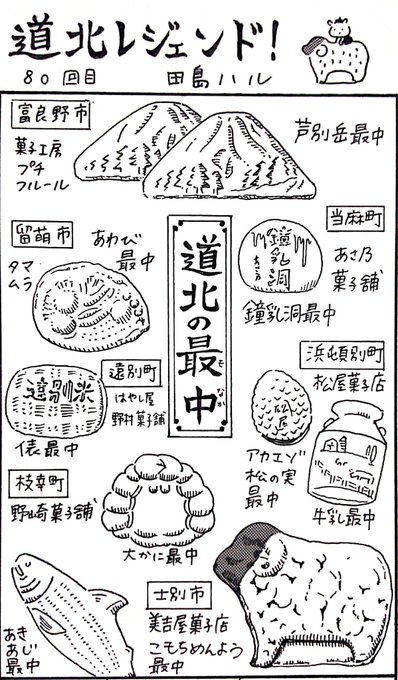 道北レジェンド!
80回目
田島ハル
富良野市
菓子工房
プチ
フルール
芦別岳最中
留萌市
タマ
ムラ
あわび
最中
道北の最中
もなか
当麻町
あさ乃
菓子舗
鐘乳洞
鐘乳洞最中
遠別町
はやし屋
野村菓子舗
遠別米
俵最中
浜頓別町
松屋菓子店
松屋
アカエゾ
松の実
最中
牛乳最中
枝幸町
野崎菓子舗
大かに最中
あき
あじ
最中
士別市
美吉屋菓子店
こもちめんよう
最中